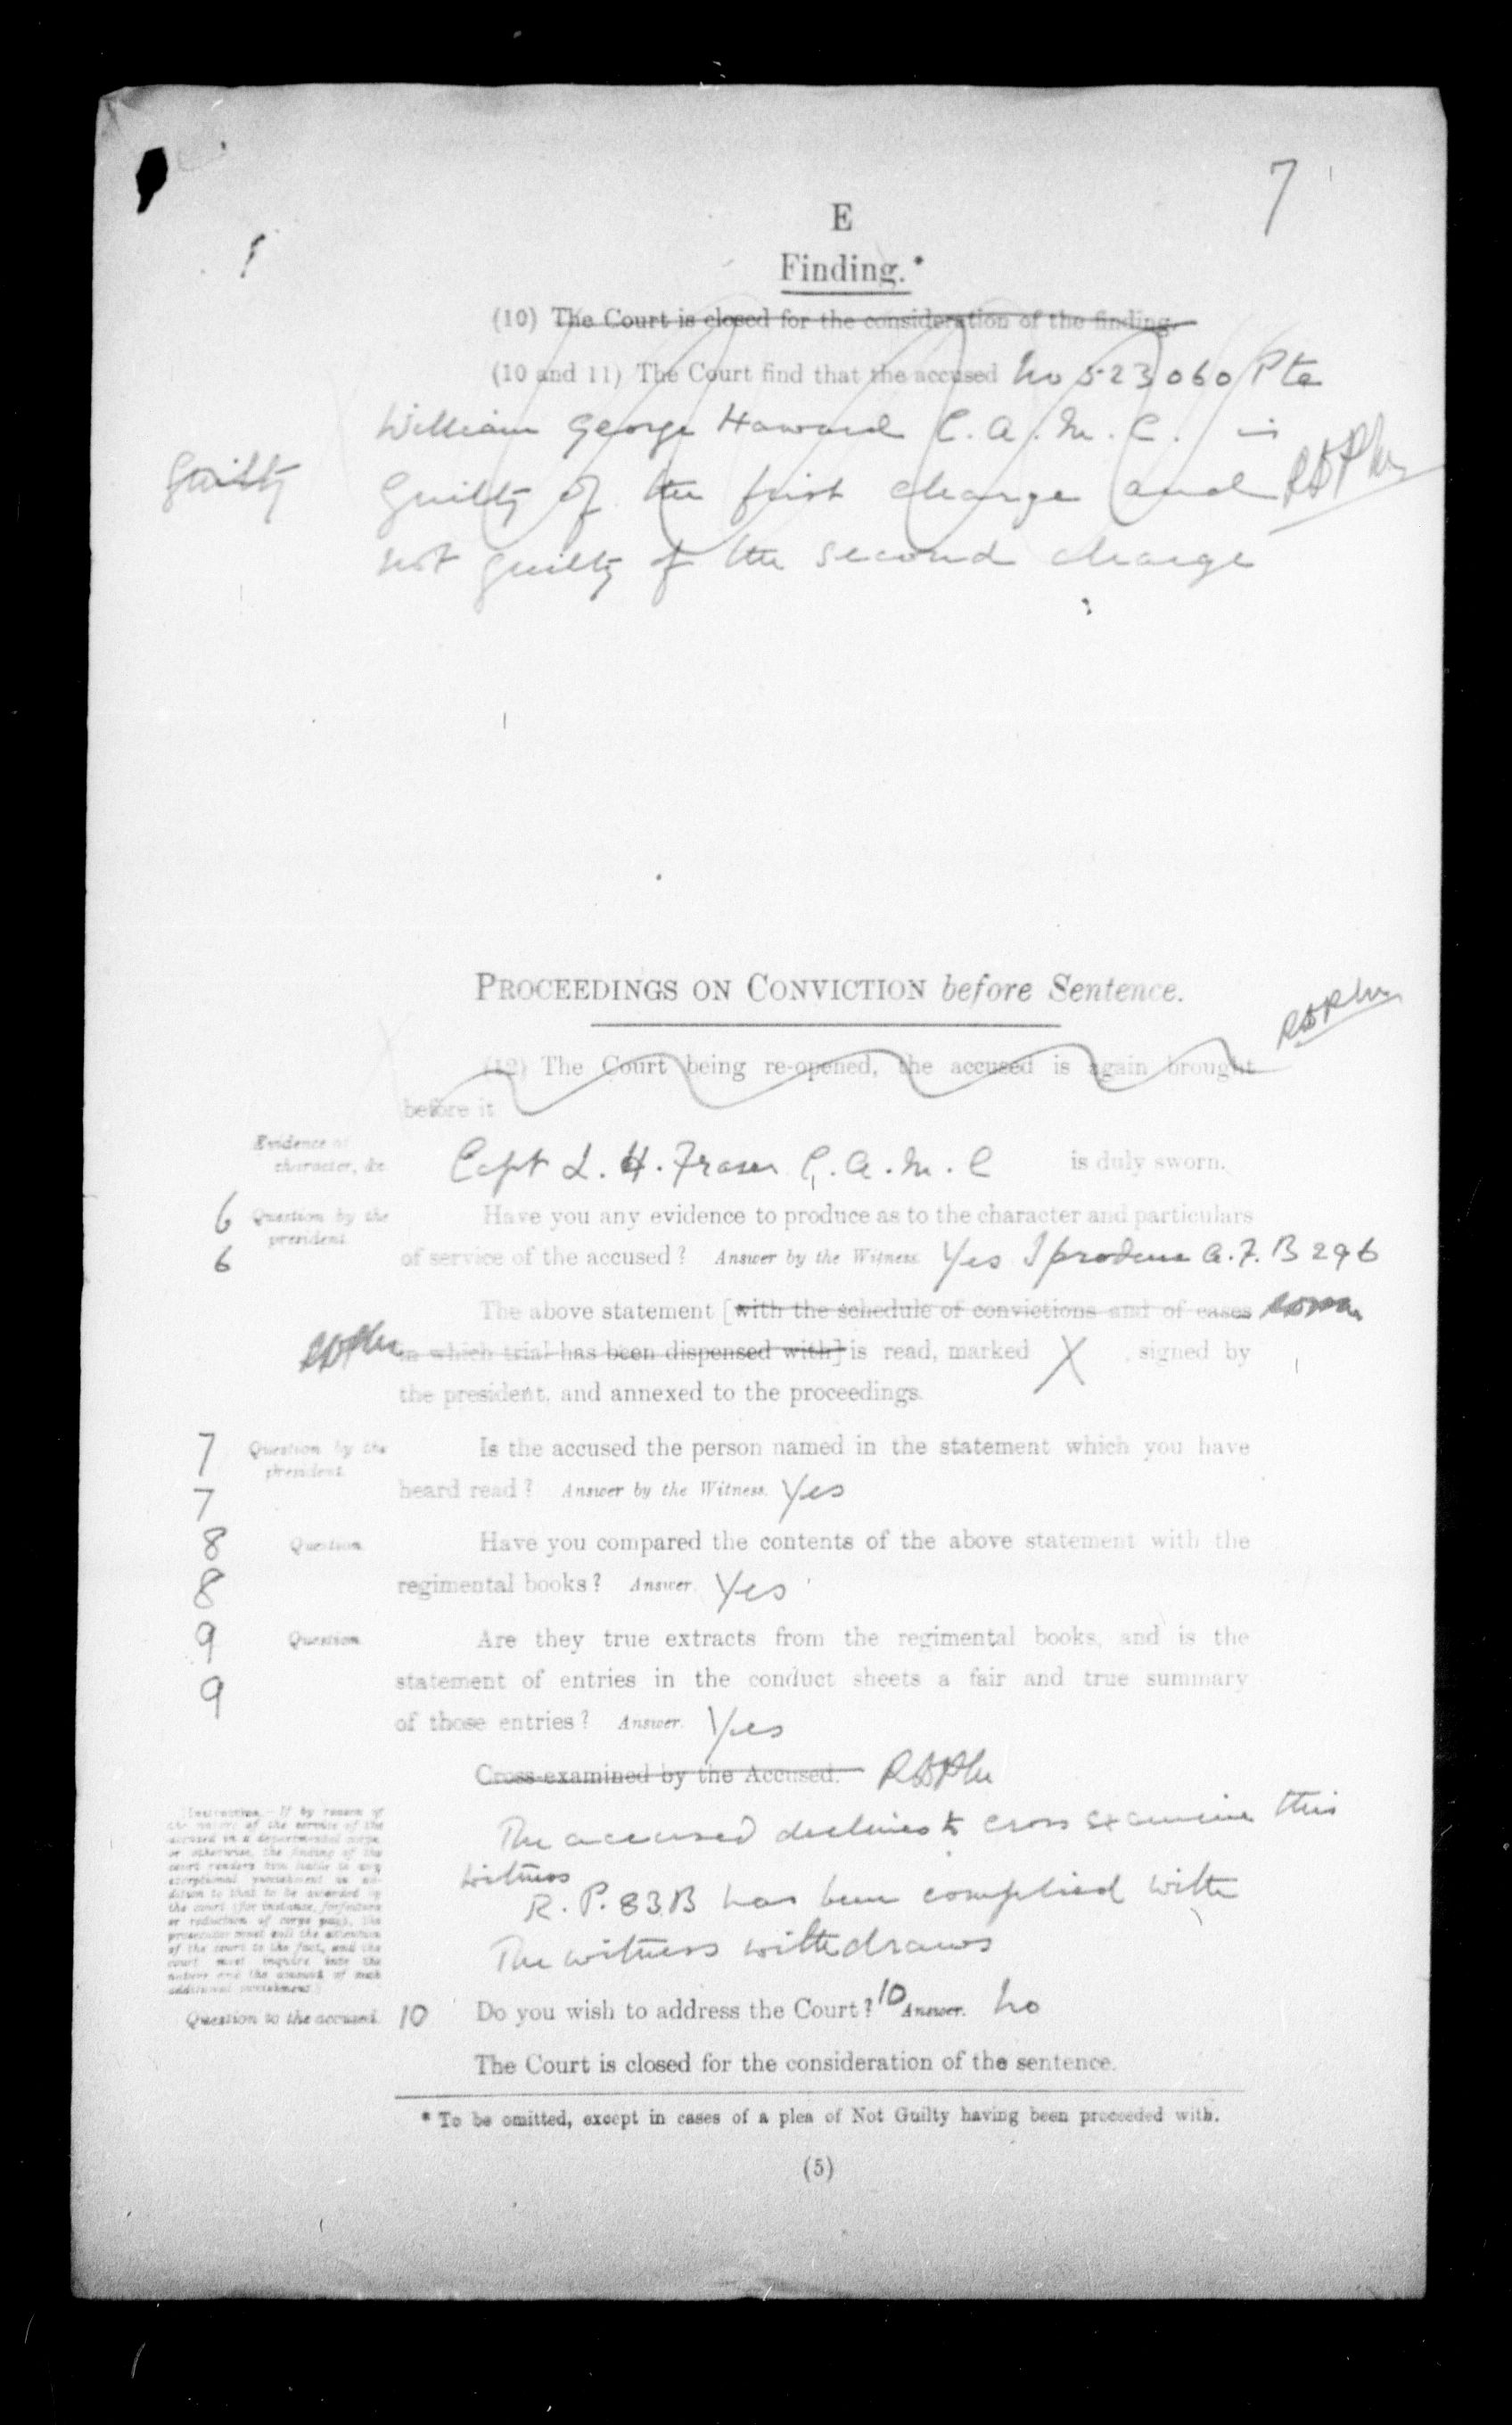 7
E
Finding.*
(10) The Court is closed for the consideration of the finding.
(10 and 11) The Court find that the accused No 523060 Pte
William George Howard C.A.M.C. is
Guilty
Guilty of the first charge and
not guilty of the second charge
PROCEEDINGS ON CONVICTION before Sentence.
(12) The Court being re-opened, the accused is again brought
before it
Evidence of
character, &c.
Capt L. H. Fraser C.A.M.C is duly sworn.
6 Question by the president. Have you any evidence to produce as to the character and particulars
6 of service of the accused? Answer by the Witness. Yes I produce A.F. B 296
The above statement [with the schedule of convictions and of cases
in which trial has been dispensed with] is read, marked X, signed by
the president, and annexed to the proceedings.
7 Question by the president. Is the accused the person named in the statement which you have
7 heard read? Answer by the Witness. Yes
8 Question. Have you compared the contents of the above statement with the
8 regimental books? Answer. Yes
9 Question. Are they true extracts from the regimental books, and is the
9 statement of entries in the conduct sheets a fair and true summary
of those entries? Answer. Yes
Cross-examined by the Accused.
The accused declines to cross examine this
witness
R.P. 83B has been complied with
The witness withdraws
[Instruction.—If by reason of
the nature of the service of the
accused in a departmental corps,
or otherwise, the finding of the
court renders him liable to any
exceptional punishment in ad-
dition to that to be awarded by
the court (for instance, forfeiture
or reduction of corps pay), the
prosecutor must call the attention
of the court to the fact, and the
court must inquire into the
nature and the amount of such
additional punishment.]
Question to the accused. 10 Do you wish to address the Court? 10 Answer. No
The Court is closed for the consideration of the sentence.
* To be omitted, except in cases of a plea of Not Guilty having been proceeded with.
(5)